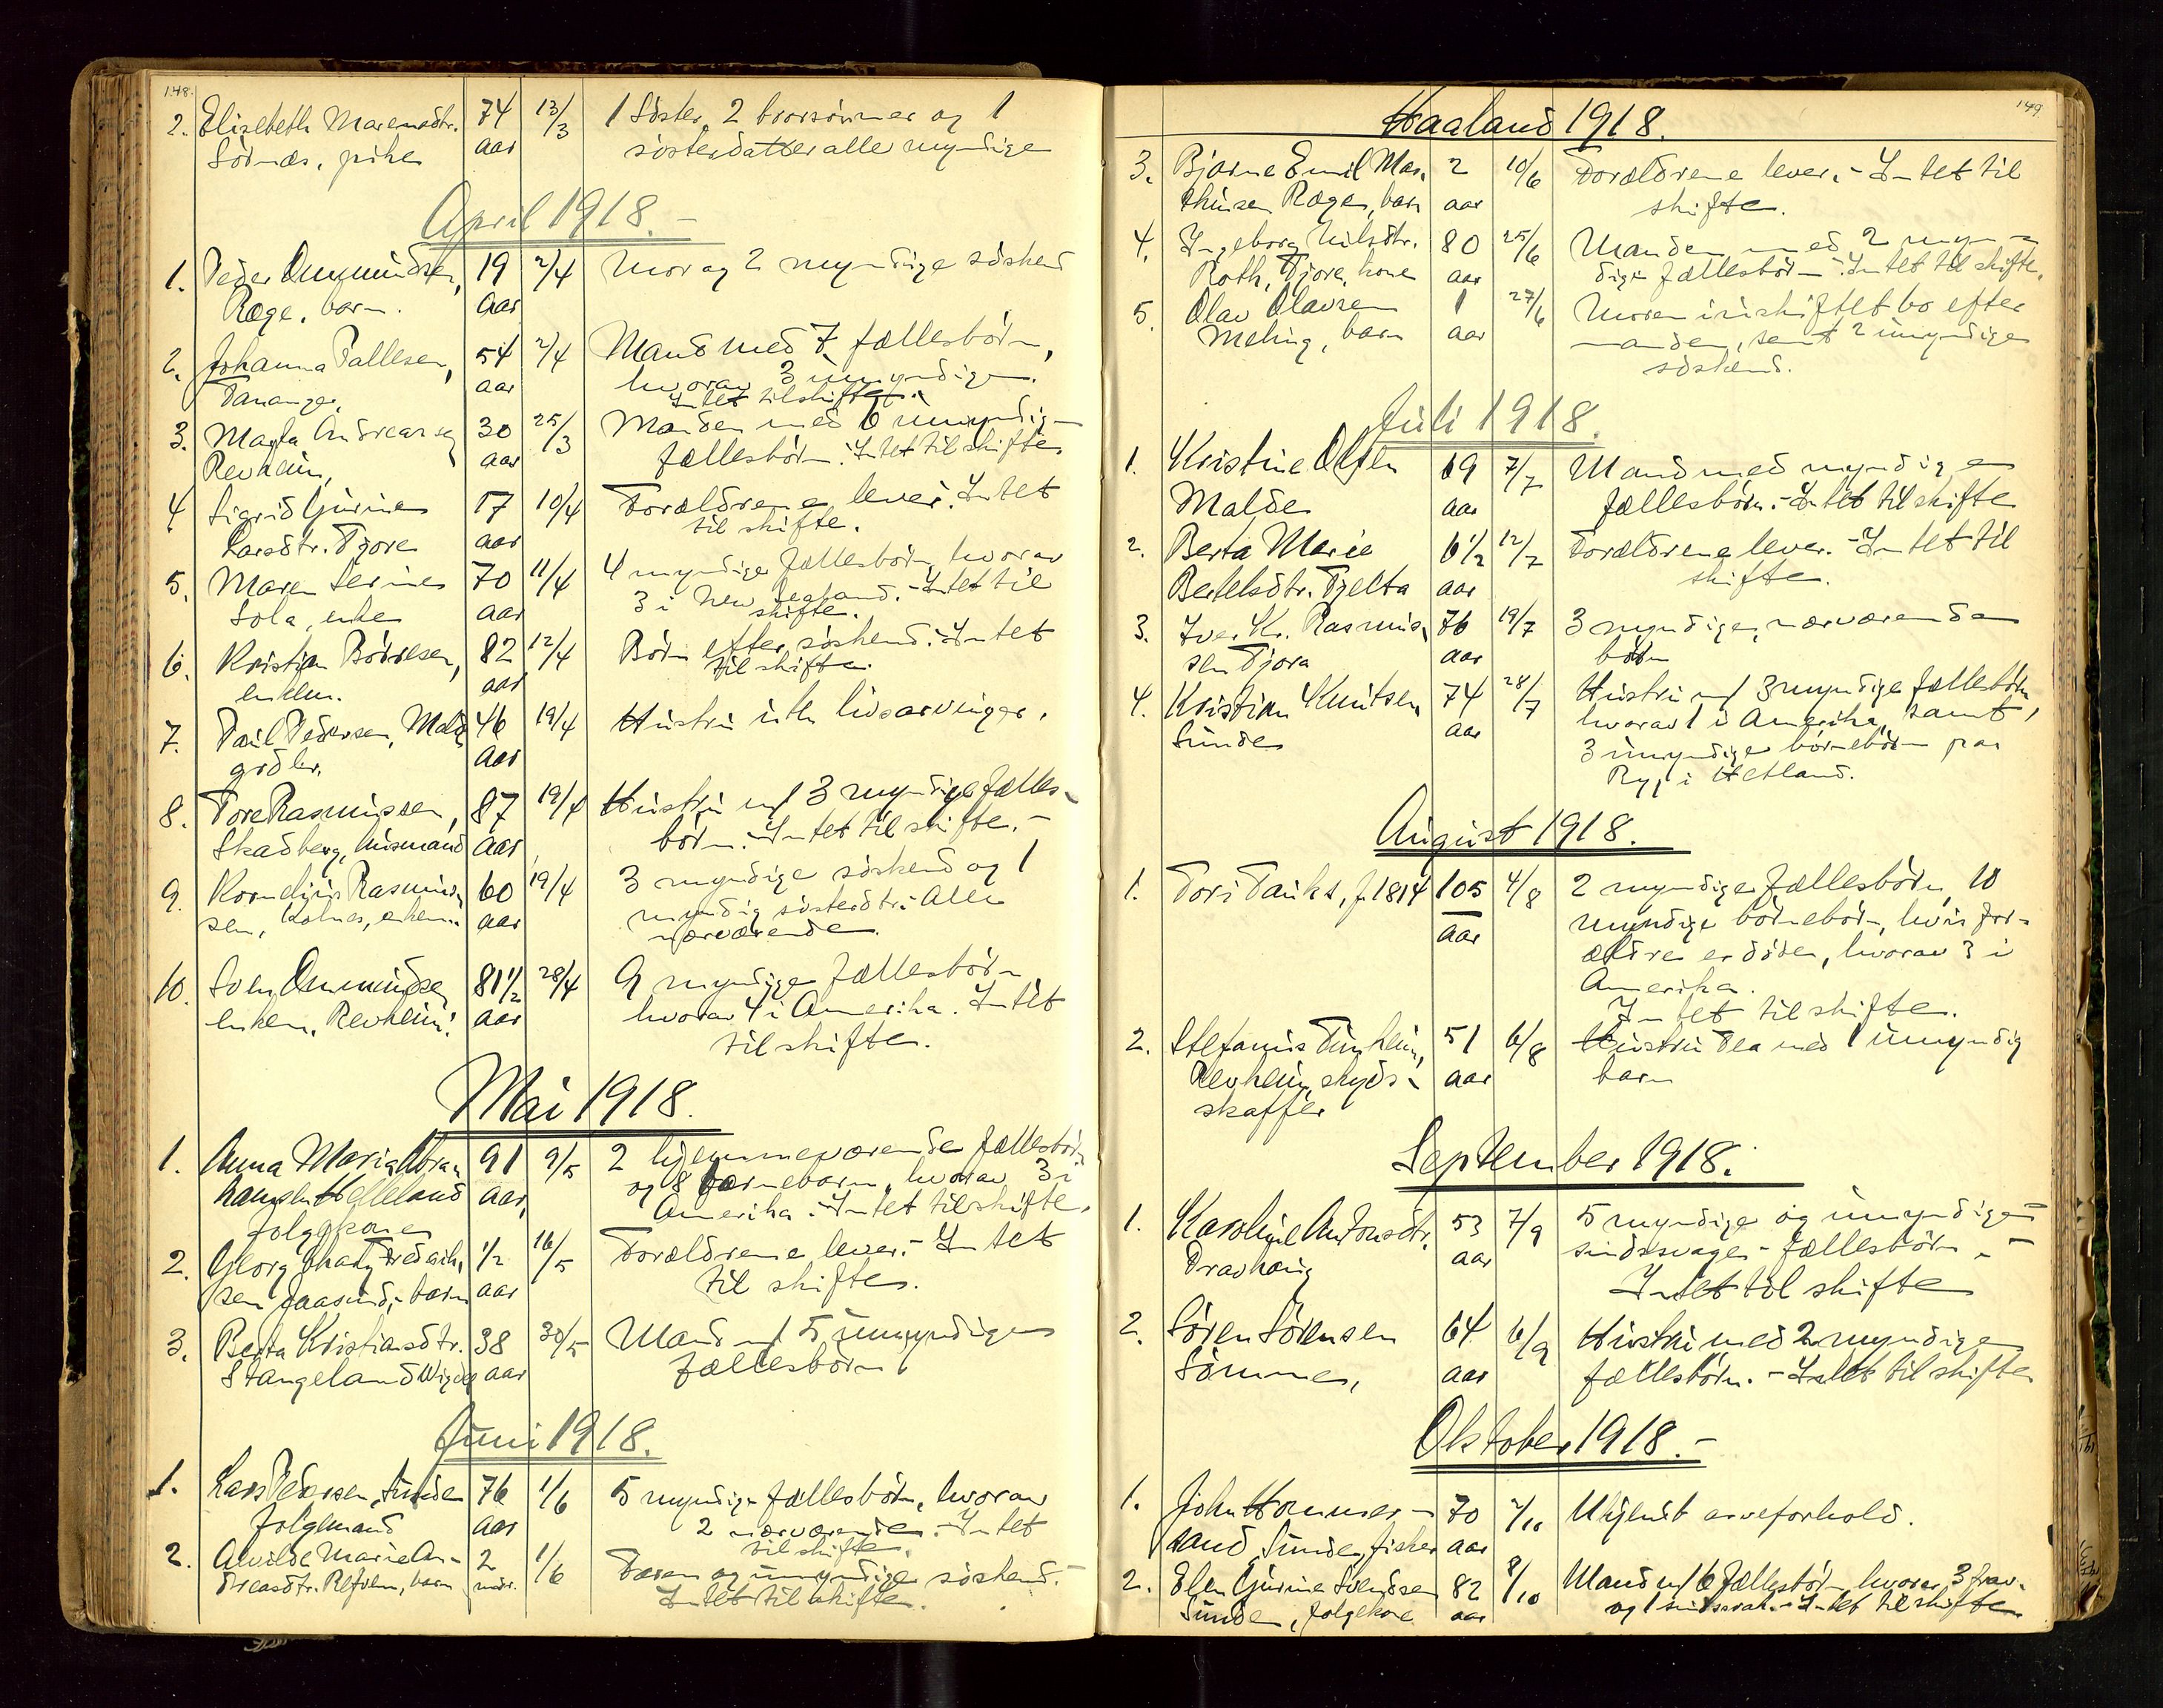 148.
2. Elisebeth Marensdtr. 74 13/3 1 Söster, 2 brorsönner og 1
Sörnæs, pike aar søsterdatter alle myndige
April 1918. -
1. Peder Ommundsen, 19 2/4 Mor og 2 myndige söskend
Ræge, barn. aar
2. Johanna Tallesen, 54 2/4 Mand med 7 fællesbörn,
Tananger, aar hvorav 3 umyndige.
Intet til skifte.
3. Marta Andreasen 30 25/3 Manden med 6 umyndige
Revheim, aar fællesbörn. Intet til skifte
4 Sigrid Gurine 17 10/4 Forældrene lever. Intet
Larsdtr. Tjora aar til skifte.
5. Maren Serine 70 11/4 4 myndige fællesbörn, hvorav
Sola, enke aar 3 i New Zealand. - Intet til
skifte.
6. Kristian Börresen, 82 12/4 Börn efter söskend. Intet
enkem. aar til skifte.
7. Paul Pedersen, Malde 46 19/4 Hustru uten livsarvinger.
grdbr. aar
8. Tore Rasmussen, 87 19/4 Hustru m/ 3 myndige fælles-
Skadberg, husmand aar börn. Intet til skifte. -
9. Kornelius Rasmus- 60 19/4 3 myndige söskend og 1
sen, Kolnes, enkem. aar myndig sösterdtr. Alle
nærværende.
10. Sven Ommundsen 81 1/2 28/4 9 myndige fællesbörn
enkem. Revheim. aar hvorav 4 i Amerika. Intet
til skifte.
Mai 1918.
1. Anna Maria Abra- 91 9/5 2 hjemmeværende fællesbörn
hamsen Helleland aar, og 8 barnebarn, hvorav 3 i
folgekone Amerika. Intet til skifte.
2. Georg Fredrik- 1/2 16/5 Forældrene lever. - Intet
sen Jaasund, - barn aar til skifte.
3. Berta Kristiansdtr. 38 30/5 Mand m/ 5 umyndige
Stangeland aar fællesbörn
Juni 1918.
1. Lars Pedersen, Sunde 76 1/6 5 myndige fællesbörn, hvorav
folgemand aar 2 nærværende. - Intet
til skifte.
2. Alvilde Marie An- 2 1/6 Faren og umyndige söskend. -
dreasdtr. barn mdr. Intet til skifte.
149
Haaland 1918.
3. Bjarne Emil Mar- 2 10/6 Forældrene lever. - Intet til
thinsen Ræge, barn aar skifte.
4. Ingeborg Nilsdtr. 80 25/6 Manden med 2 myn-
Roth, Tjora, kone aar dige fællesbörn - Intet til skifte.
5. Olav Olavsen 1 27/6 Moren i uskiftet bo efter
Meling, barn aar manden, samt 2 umyndige
söskend.
Juli 1918.
1. Kristine Olsen 69 7/7 Mand med myndige
Malde aar fællesbörn. - Intet til skifte
2. Berta Marie 6 1/2 12/7 Forældrene lever. - Intet til
Bertelsdtr. Tjelta aar skifte.
3. Iver Kr. Rasmus- 76 19/7 3 myndige, nærværende
sen Tjora aar börn
4. Kristian Knutsen 74 28/7 Hustru m/ 3 myndige fællesbörn
Sunde aar hvorav 1 i Amerika, samt
3 umyndige börnebörn paa
Ryg i Hetland.
August 1918.
1. Tori Tanks, f. 1814 105 4/8 2 myndige fællesbörn, 10
aar myndige börnebörn, hvis for-
ældre er döde, hvorav 3 i
Amerika.
Intet til skifte.
2. Stefanus 51 6/8 Hustru Tea med 1 umyndig
Revheim, skyds- aar barn
skaffer
September 1918.
1. Karoline Antonsdtr. 53 7/9 5 myndige og umyndige
Pravhaug aar sindssvage - fællesbörn. -
Intet til skifte
2. Sören Sörensen 64 6/9 Hustru med 2 myndige
Sömme, aar fællesbörn. - Intet til skifte
Oktober 1918. -
1. John Hommer- 70 2/10 Ukjendt arveforhold.
sand, Sunde, fisker aar
2. Elen Gurine Svendsen 82 8/10 Mand m/ 6 fællesbörn, hvorav 3 frav.
Sunde, folgekone aar og 1 sindssvak. - Intet til skifte